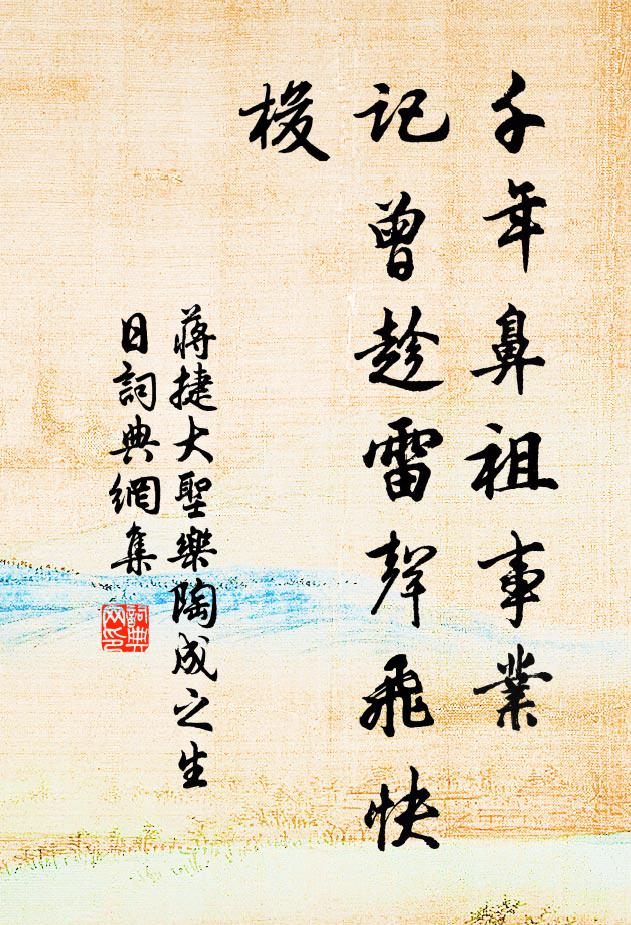 千年鼻祖事業
記曾趁雷聲飛快
梭
蔣捷大聖樂陶成之生
日詞典網集
詞典网印